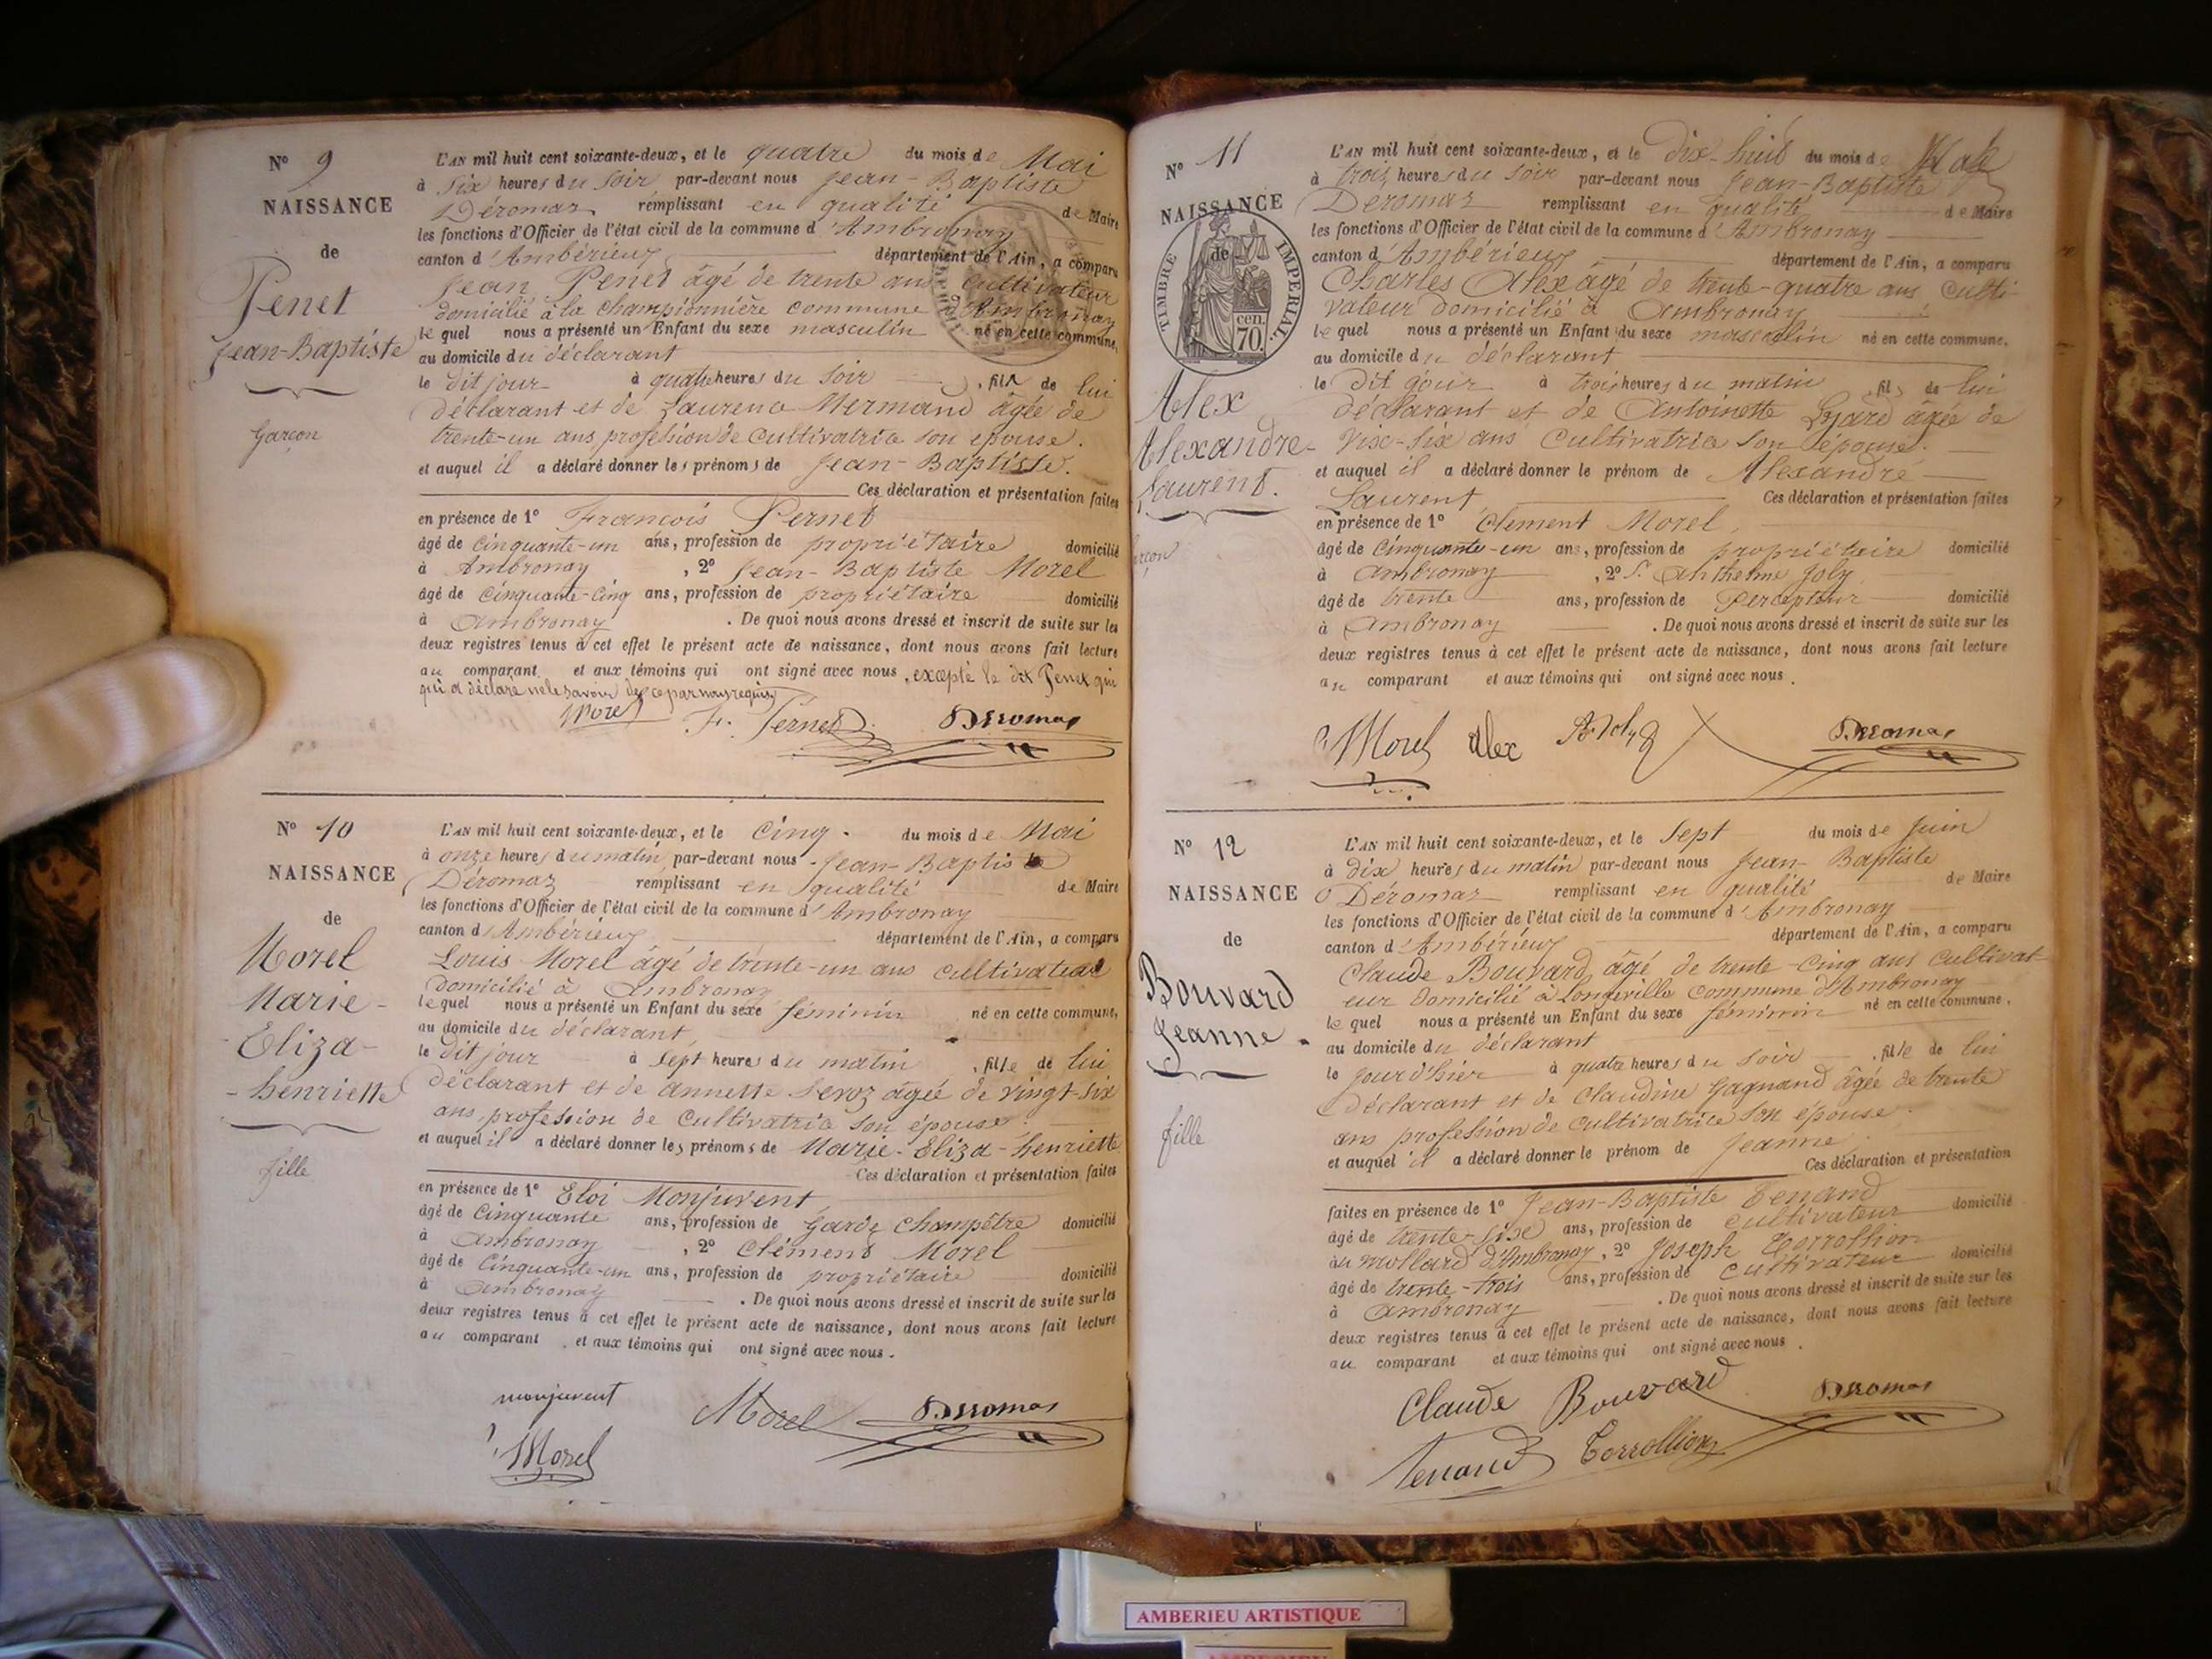 N° 9
NAISSANCE
de
Penet
Jean-Baptiste
garçon
L'AN mil huit cent soixante-deux, et le quatre du mois de Mai
à six heures du soir par-devant nous Jean-Baptiste
Déromas remplissant en qualité de Maire
les fonctions d'Officier de l'état civil de la commune d'Ambronay
canton d'Ambérieux département de l'Ain, a comparu
Jean Penet âgé de trente ans cultivateur
domicilié à la championnière commune d'Ambronay
le quel nous a présenté un Enfant du sexe masculin né en cette commune,
au domicile du déclarant
le dit jour à quatre heures du soir, fils de lui
déclarant et de Laurence Mermand âgée de
trente-un ans profession de cultivatrice son épouse.
et auquel il a déclaré donner les prénoms de Jean-Baptiste.
Ces déclaration et présentation faites
en présence de 1° François Pernet
âgé de cinquante-un ans, profession de propriétaire domicilié
à Ambronay, 2° Jean-Baptiste Morel
âgé de cinquante-cinq ans, profession de propriétaire domicilié
à Ambronay. De quoi nous avons dressé et inscrit de suite sur les
deux registres tenus à cet effet le présent acte de naissance, dont nous avons fait lecture
au comparant et aux témoins qui ont signé avec nous, excepté le dit Penet qui
qui a déclaré ne le savoir de ce par nous requis
Morel F. Pernet Deromas
N° 10
NAISSANCE
de
Morel
Marie-
Eliza-
-henriette
fille
L'AN mil huit cent soixante-deux, et le cinq. du mois de Mai
à onze heures du matin par-devant nous Jean-Baptiste
Déromas remplissant en qualité de Maire
les fonctions d'Officier de l'état civil de la commune d'Ambronay
canton d'Ambérieux département de l'Ain, a comparu
Louis Morel âgé de trente-un ans cultivateur
domicilié à Ambronay
le quel nous a présenté un Enfant du sexe féminin né en cette commune,
au domicile du déclarant
le dit jour à sept heures du matin, fille de lui
déclarant et de annette Servoz âgée de vingt-six
ans, profession de cultivatrice son épouse.
et auquel il a déclaré donner les prénoms de Marie-Eliza-henriette
Ces déclaration et présentation faites
en présence de 1° Eloi Monjuvent
âgé de cinquante ans, profession de garde champêtre domicilié
à Ambronay, 2° Clément Morel
âgé de cinquante-un ans, profession de propriétaire domicilié
à Ambronay. De quoi nous avons dressé et inscrit de suite sur les
deux registres tenus à cet effet le présent acte de naissance, dont nous avons fait lecture
au comparant, et aux témoins qui ont signé avec nous.
monjuvent Morel Deromas
C. Morel
N° 11
NAISSANCE
de
TIMBRE IMPÉRIAL
70 cen.
Alex
Alexandre-
Laurent.
garçon
L'AN mil huit cent soixante-deux, et le dix-huit du mois de Mai
à trois heures du soir par-devant nous Jean-Baptiste
Déromas remplissant en qualité de Maire
les fonctions d'Officier de l'état civil de la commune d'Ambronay
canton d'Ambérieux département de l'Ain, a comparu
Charles Alex âgé de trente-quatre ans culti-
vateur domicilié à Ambronay
le quel nous a présenté un Enfant du sexe masculin né en cette commune,
au domicile du déclarant
le dit jour à trois heures du matin, fils de lui
déclarant et de Antoinette âgée de
ans cultivatrice son épouse.
et auquel il a déclaré donner le prénom de Alexandre
Laurent, Ces déclaration et présentation faites
en présence de 1° Clément Morel
âgé de cinquante-un ans, profession de propriétaire domicilié
à Ambronay, 2° Anthelme Joly
âgé de trente ans, profession de Percepteur domicilié
à Ambronay. De quoi nous avons dressé et inscrit de suite sur les
deux registres tenus à cet effet le présent acte de naissance, dont nous avons fait lecture
au comparant et aux témoins qui ont signé avec nous.
C. Morel Alex A Joly Deromas
N° 12
NAISSANCE
de
Bouvard
Jeanne.
fille
L'AN mil huit cent soixante-deux, et le Sept du mois de Juin
à dix heures du matin par-devant nous Jean-Baptiste
Déromas remplissant en qualité de Maire
les fonctions d'Officier de l'état civil de la commune d'Ambronay
canton d'Ambérieux département de l'Ain, a comparu
Claude Bouvard, âgé de trente-cinq ans cultivat-
eur domicilié à Longeville commune d'Ambronay
le quel nous a présenté un Enfant du sexe féminin né en cette commune,
au domicile du déclarant
le jour d'hier à quatre heures du soir, fille de lui
déclarant et de Claudine Gagnand âgée de trente
ans profession de cultivatrice son épouse.
et auquel il a déclaré donner le prénom de Jeanne.
Ces déclaration et présentation
faites en présence de 1° Jean-Baptiste Tenand
âgé de trente-six ans, profession de cultivateur domicilié
au mollard d'Ambronay, 2° Joseph Torrollion
âgé de trente-trois ans, profession de cultivateur domicilié
à Ambronay. De quoi nous avons dressé et inscrit de suite sur les
deux registres tenus à cet effet le présent acte de naissance, dont nous avons fait lecture
au comparant et aux témoins qui ont signé avec nous.
Claude Bouvard Deromas
Tenand Torrollion
AMBERIEU ARTISTIQUE
AMBERIEU